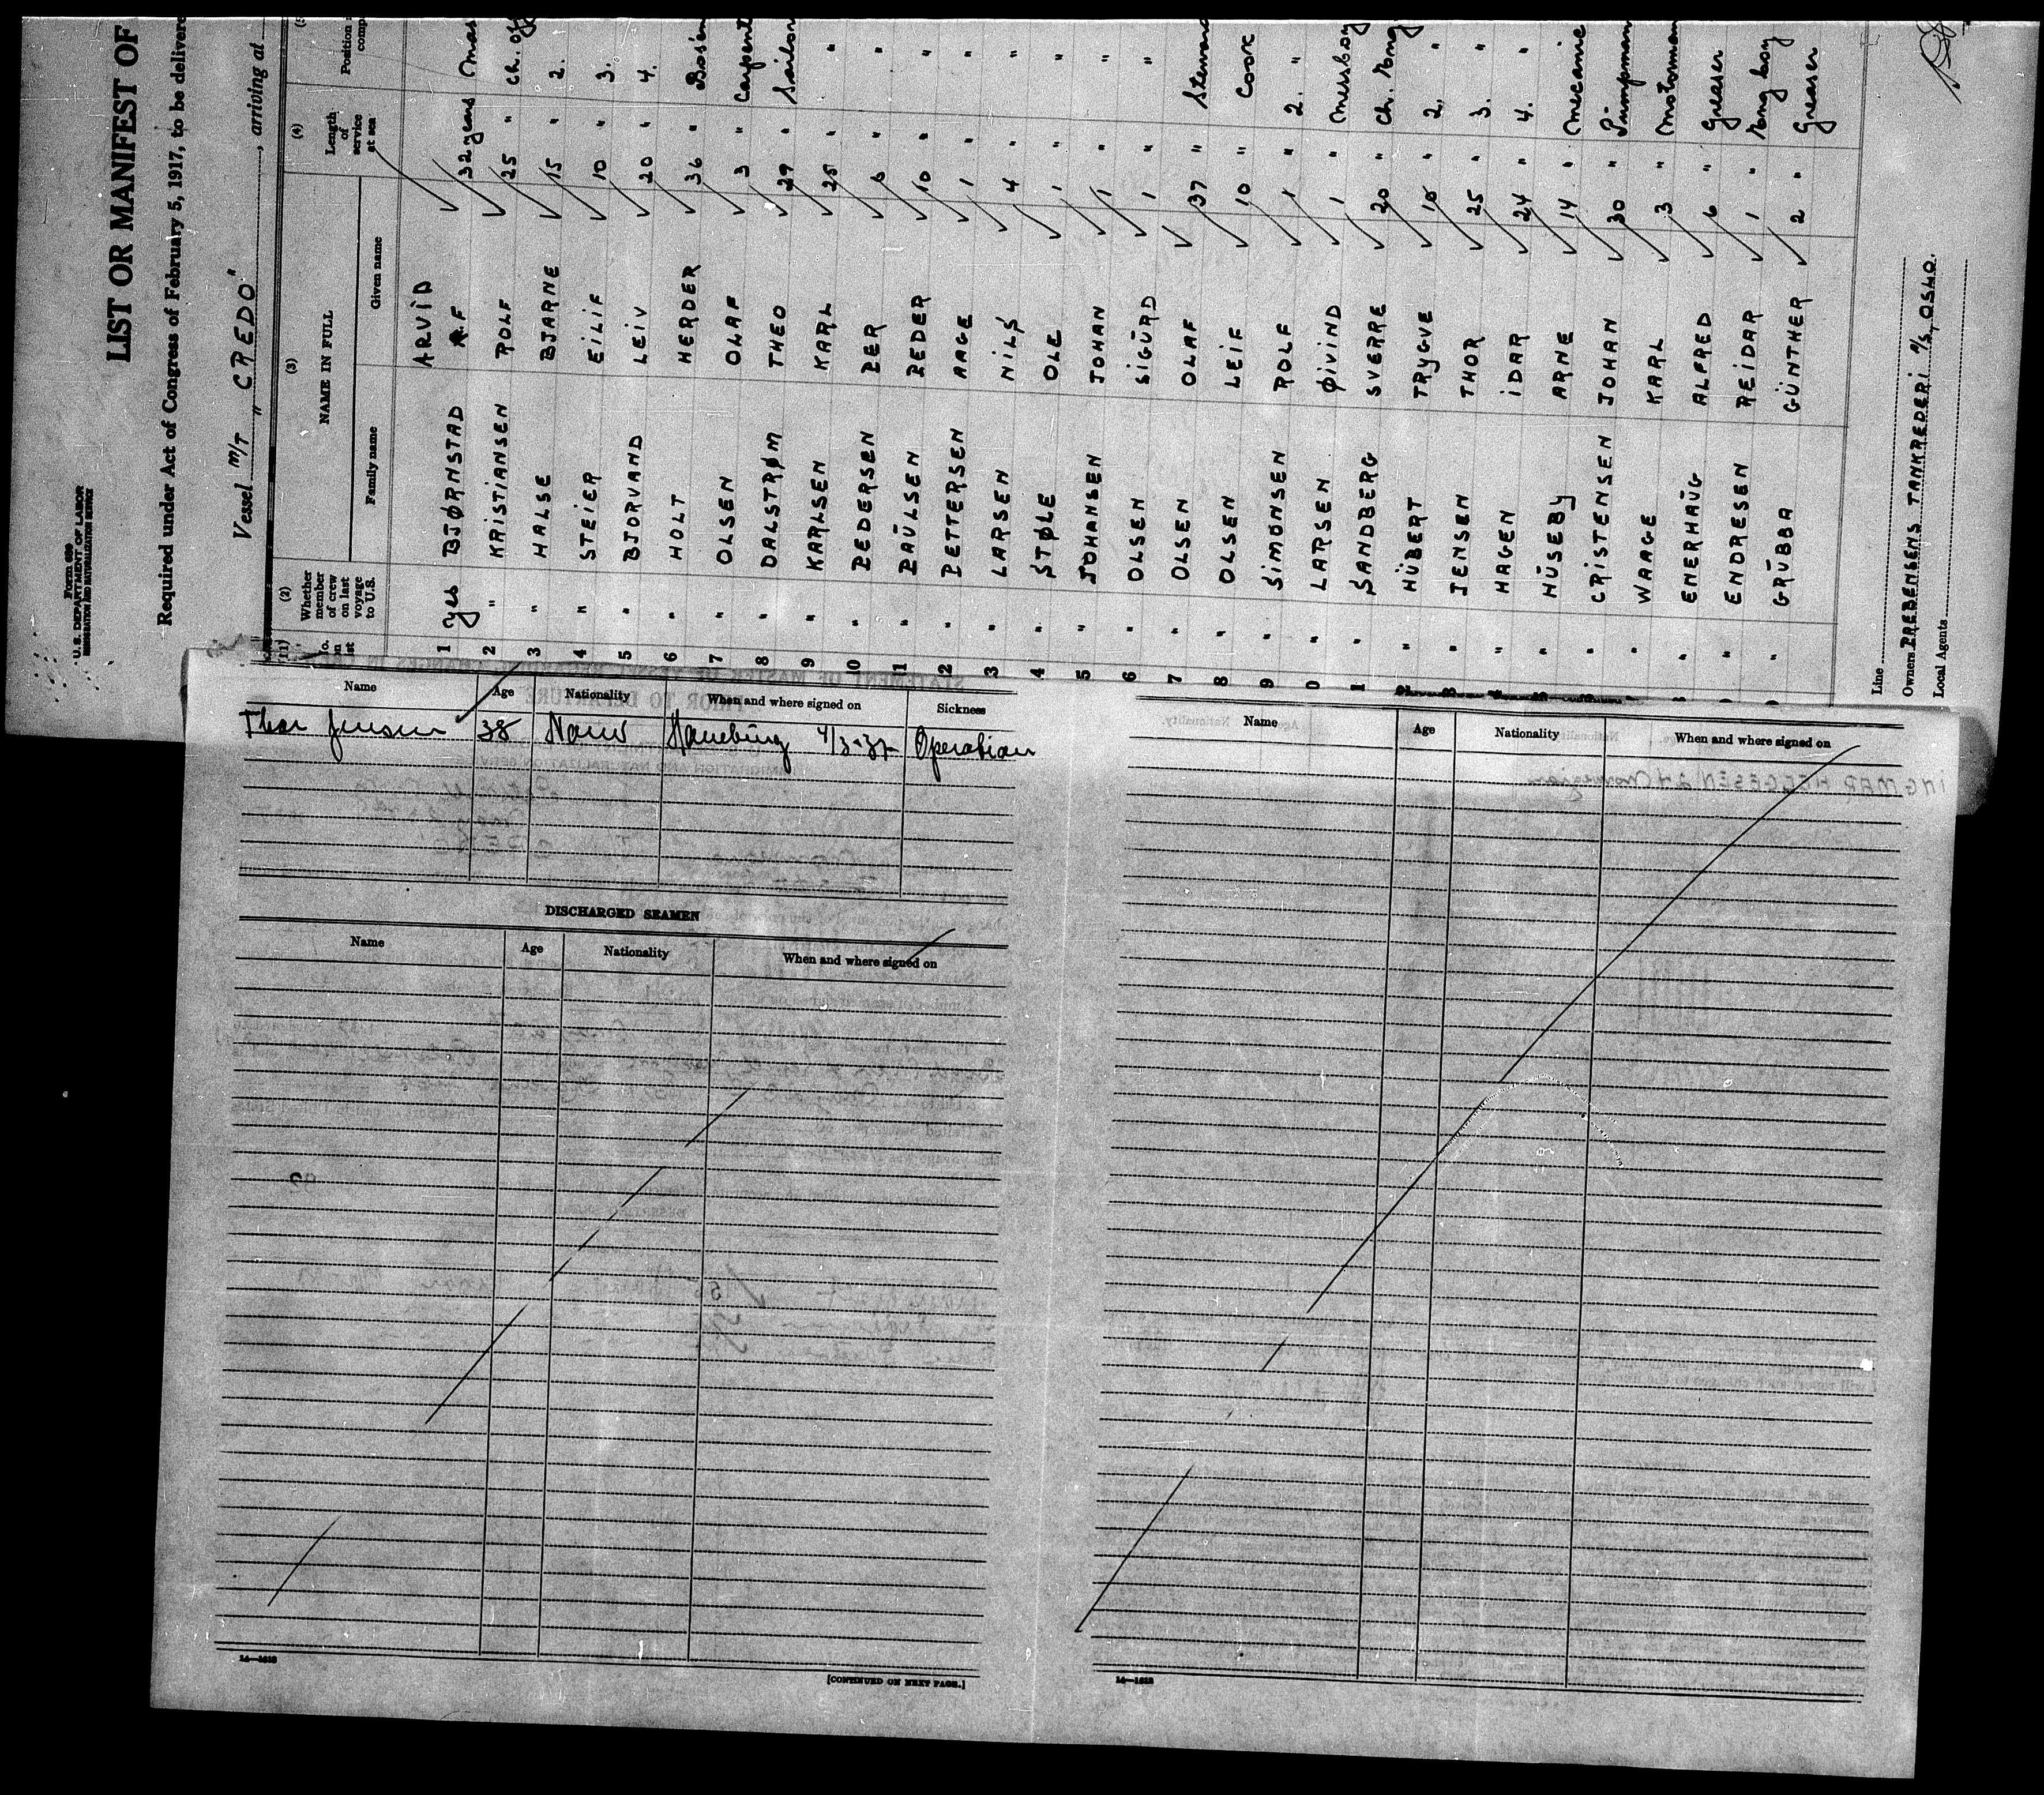 Form 689
U. S. DEPARTMENT OF LABOR
IMMIGRATION AND NATURALIZATION SERVICE
LIST OR MANIFEST OF
Required under Act of Congress of February 5, 1917, to be delivere
Vessel M/T „CREDO", arriving at
(2) (3) (4)
Whether member of crew on last voyage to U.S. NAME IN FULL Length of service at sea Position
Family name Given name
1 yes BJØRNSTAD ARVID 32 years Mas
2 " KRISTIANSEN ROLF 25 " Ch. Off
3 " HALSE BJARNE 15 " 2.
4 " STEIER EILIF 10 " 3.
5 " BJORVAND LEIV 20 " 4.
6 " HOLT HERDER 36 " Bos'n
7 " OLSEN OLAF 3 " Carpent
8 " DALSTRØM THEO 29 " Sailor
9 " KARLSEN KARL 25 " "
10 " PEDERSEN PER 6 " "
11 " PAÜLSEN PEDER 10 " "
12 " PETTERSEN AAGE 1 " "
3 " LARSEN NILS 4 " "
4 " STØLE OLE 1 " "
5 " JOHANSEN JOHAN 1 " "
6 " OLSEN SIGÜRD 1 " "
7 " OLSEN OLAF 37 " Steward
8 " OLSEN LEIF 10 " Coox
9 " SIMONSEN ROLF 1 " 2. "
0 " LARSEN ØIVIND 1 " Messboy
1 " SANDBERG SVERRE 20 " Ch. Eng
" HÜBERT TRYGVE 10 " 2. "
" JENSEN THOR 25 " 3. "
" HAGEN IDAR 24 " 4. "
" HÜSEBY ARNE 14 " Mecanic
" CRISTENSEN JOHAN 30 " Pumpman
" WAAGE KARL 3 " Motorman
" ENERHAÜG ALFRED 6 " Greaser
" ENDRESEN REIDAR 1 " Eng boy
" GRÜBBA GÜNTHER 2 " Greaser
Line
Owners PREBENSENS TANKREDERI A/S, OSLO.
Local Agents
Name Age Nationality When and where signed on Sickness
Thor Jensen 38 Norw Hamburg 4/3-37 Operation
DISCHARGED SEAMEN
Name Age Nationality When and where signed on
14—1613
[CONTINUED ON NEXT PAGE.]
Name Age Nationality When and where signed on
14—1613